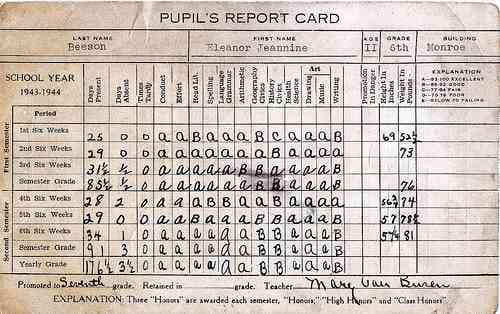 PUPIL'S REPORT CARD
LAST NAME FIRST NAME AGE GRADE BUILDING
Beeson Eleanor Jeannine 11 6th Monroe
SCHOOL YEAR
1943-1944
Days Present Days Absent Times Tardy Conduct Effort Read Lit. Spelling Language Grammar Arithmetic Geography Civics History Civics Health Science Art Drawing Music Writing Promotion In Danger Height In Inches Weight In Pounds
EXPLANATION
A-93-100 EXCELLENT
B-GOOD
C-77-84 FAIR
D-70-76 POOR
E-BELOW 70 FAILING
Period
First Semester
1st Six Weeks 25 0 0 a a B a a a B C a a a B 69
2nd Six Weeks 29 0 0 a a a a a a a B a a a B 73
3rd Six Weeks 31½ ½ 0 a a a a a B B B a a a B
Semester Grade 85½ ½ 0 a a a a a a B B a a a B 76
Second Semester
4th Six Weeks 28 2 0 a a a a a a B a a a a B 74
5th Six Weeks 29 0 0 a a B a a a B B a a a B 57
6th Six Weeks 34 1 0 a a a a a B B B a a a B 81
Semester Grade 91 3 0 a a a a a a B B a a a B
Yearly Grade 176½ 3½ 0 a a a a a a B B a a a B
Promoted to Seventh grade. Retained in grade. Teacher Mary Van Buren
EXPLANATION: Three "Honors" are awarded each semester, "Honors," "High Honors" and "Class Honors"